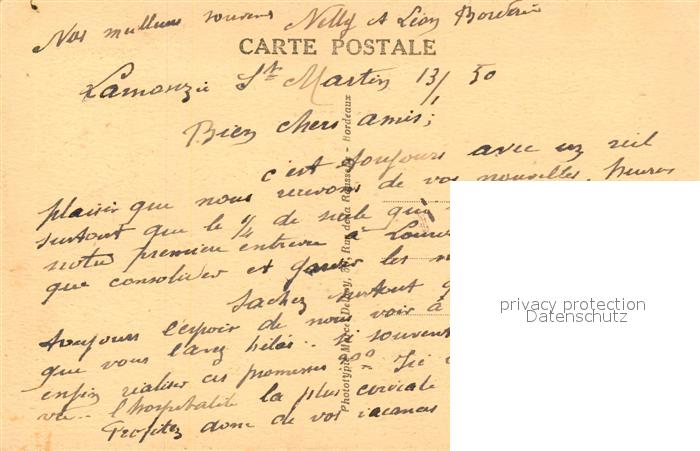 Nos meilleurs souvenirs Nelly et Léon
CARTE POSTALE
Lamonzie St Martin 13/1 50
Bien chers amis;
c'est toujours avec un réel
plaisir que nous recevons de vos nouvelles, heureux
surtout que le 1/4 de siècle qui
notre première entrevue à
que consolider et garder les
Sachez surtout
toujours l'espoir de nous voir à
que vous l'avez hélas.. si souvent
enfin réaliser ces promesses Ici
l'hospitalité la plus cordiale
Profitez donc de vos vacances
Phototypie Marcel Delboy, Rue de la Rousselle - Bordeaux
privacy protection
Datenschutz